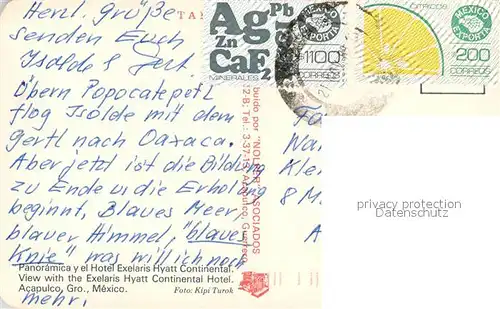 Herzl. Grüße
senden Euch
Isolde & Gert.
Übern Popocatepetl
flog Isolde mit dem
Gertl nach Oaxaca.
Aber jetzt ist die Bildung
zu Ende u die Erholung
beginnt, Blaues Meer,
blauer Himmel, "blaues
Knie" was will ich noch
mehr,
Panorámica y el Hotel Exelaris Hyatt Continental.
View with the Exelaris Hyatt Continental Hotel.
Acapulco, Gro., México. Foto: Kipi Turok
TA
buido por "NOLTER" ASOCIADOS
2-B; Tel.: 3-37-15 Acapulco, Guerrero
Ag Pb
Zn
CaF2
MINERALES
MEXICO
EXPORTA
$1100
CORREOS
CITRICOS
MEXICO
EXPORTA
200
CORREOS
Kle
8 M
privacy protection
Datenschutz